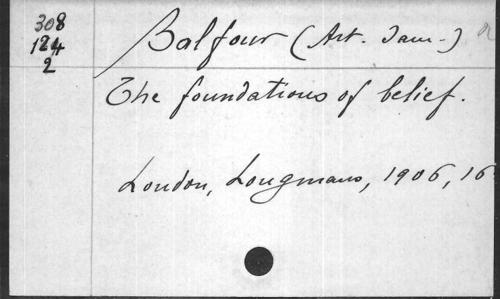 308
124
2
Balfour (Art. Jam.)
The foundations of belief.
London, Longmans, 1906, 16